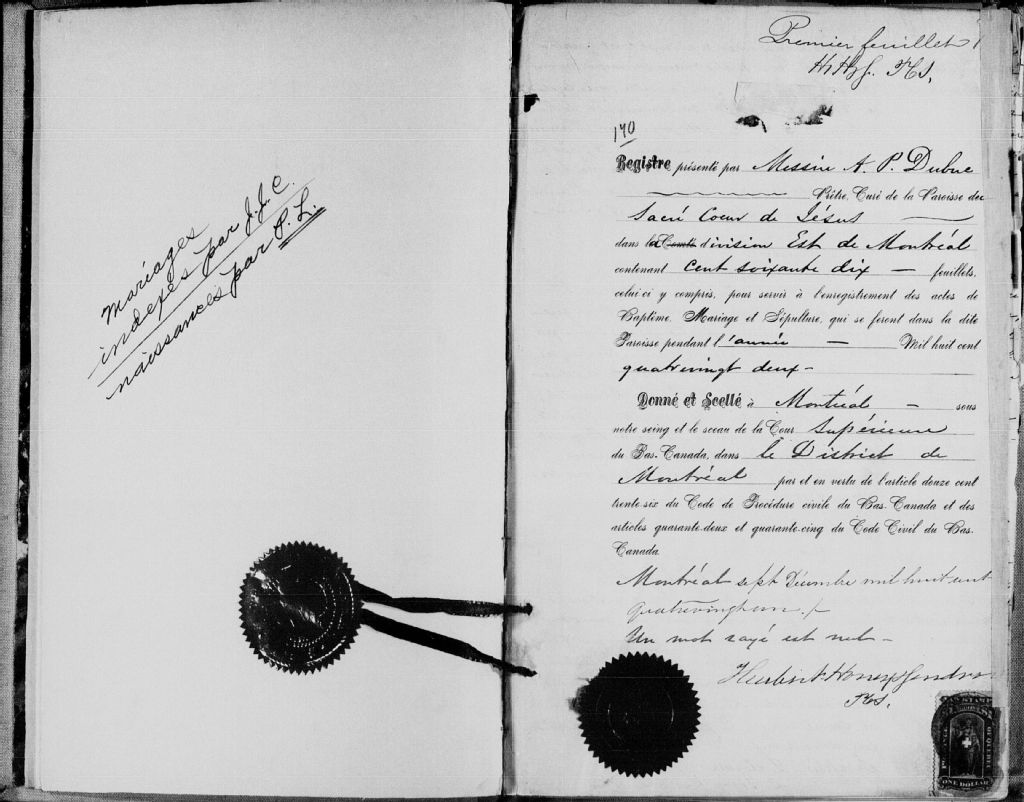 mariages
indexés par J.J.C.
naissances par P. L.
Premier feuillet 1
HHHyG. PCS.
170
Registre présenté par Messire A. P. Dubuc
Prêtre, Curé de la Paroisse du
Sacré Coeur de Jésus
dans la Comté division Est de Montréal
contenant Cent soixante dix — feuillets,
celui-ci y compris, pour servir à l'enregistrement des actes de
Baptême, Mariage et Sépulture, qui se feront dans la dite
Paroisse pendant l'année — Mil huit cent
quatrevingt deux -
Donné et Scellé à Montréal — sous
notre seing et le sceau de la Cour Supérieure
du Bas-Canada, dans le District de
Montréal par et en vertu de l'article douze cent
trente-six du Code de Procédure civile du Bas-Canada et des
articles quarante-deux et quarante-cinq du Code Civil du Bas-
Canada.
Montréal sept Décembre mil huit cent
quatrevingt un ./-
Un mot rayé est nul -
Honey Gendron
PCS.
STAMP
PROVINCE OF QUEBEC
ONE DOLLAR